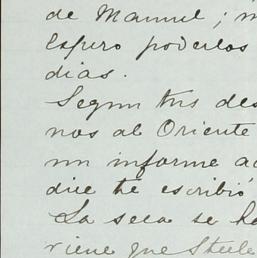 de Manuel; m
espero poderlos
dias.
Segun tus des
nos al Oriente
un informe ac
dice te escribió
La seca se ha
viene que Steele